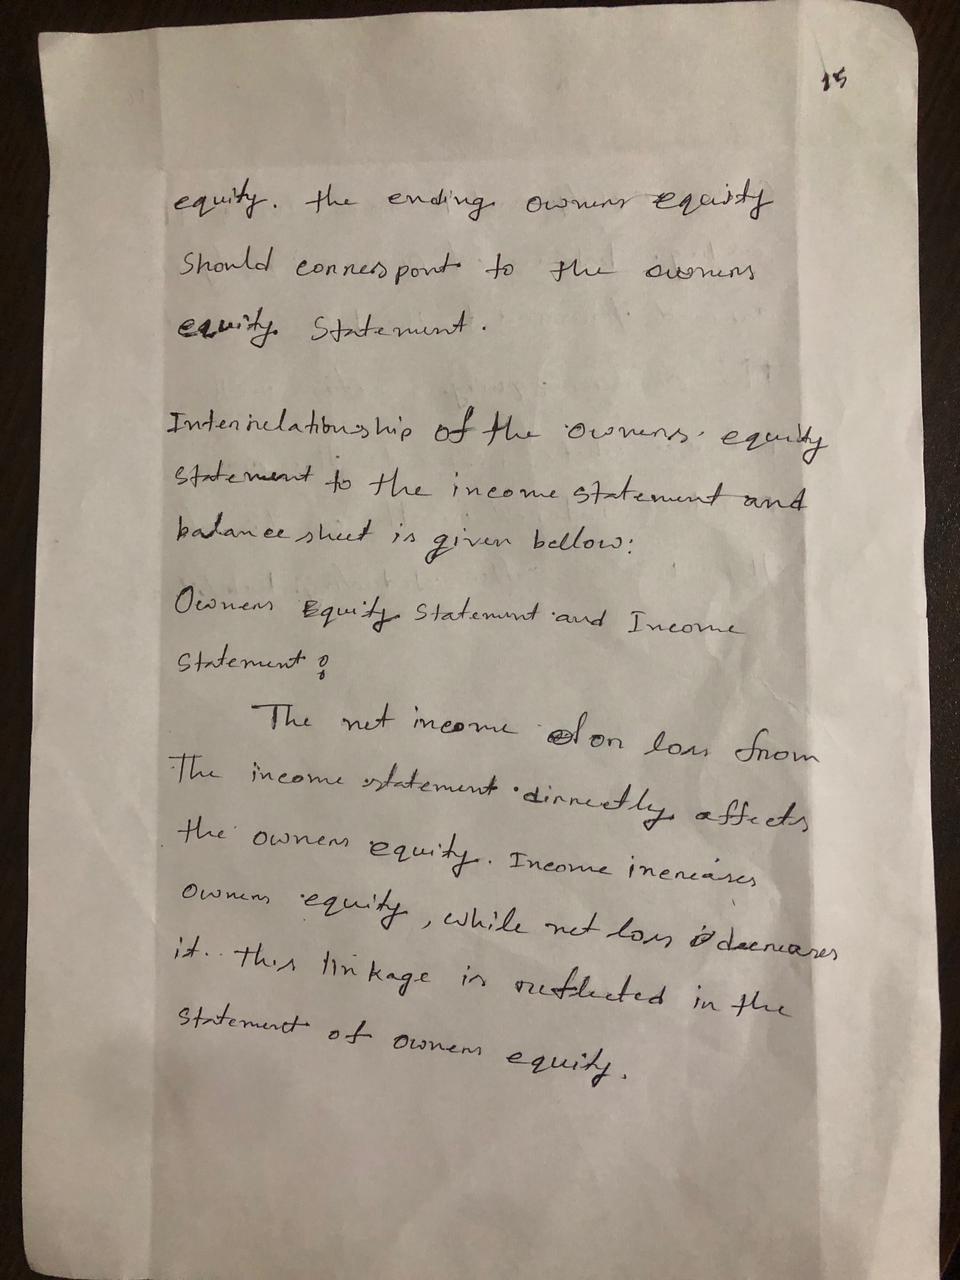 15
equity. the ending owners equity
should correspont to the owners
equity statement.
Interrelationship of the owners equity
statement to the income statement and
balance sheet is given bellow:
Owners Equity statement and Income
statement:
The net income or loss from
The income statement dirrectly affects
the owners equity. Income increases
owners equity, while net loss decreases
it. this linkage is reflected in the
statement of owners equity.